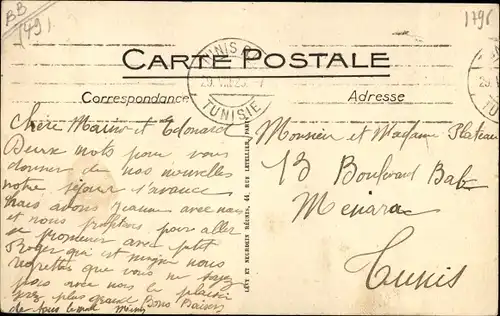 BB
1491
1796
CARTE POSTALE
TUNIS
TUNISIE
Correspondance
Adresse
Chère et Edouard
Deux mots pour vous
donner de nos nouvelles
notre séjour s'avance
mais avons Jeanne avec nous
et nous profitons pour aller
se promener avec ptit
Roger qui est mignon nous
regrettons que vous ne soyez
pas avec nous le plaisir
plus grand Bons Baisers
de tous
LÉVY ET NEURDEIN RÉUNIS, 44, RUE LETELLIER, PARIS
Monsieur et Madame Plateau
13 Boulevard Bab
Menara
Tunis